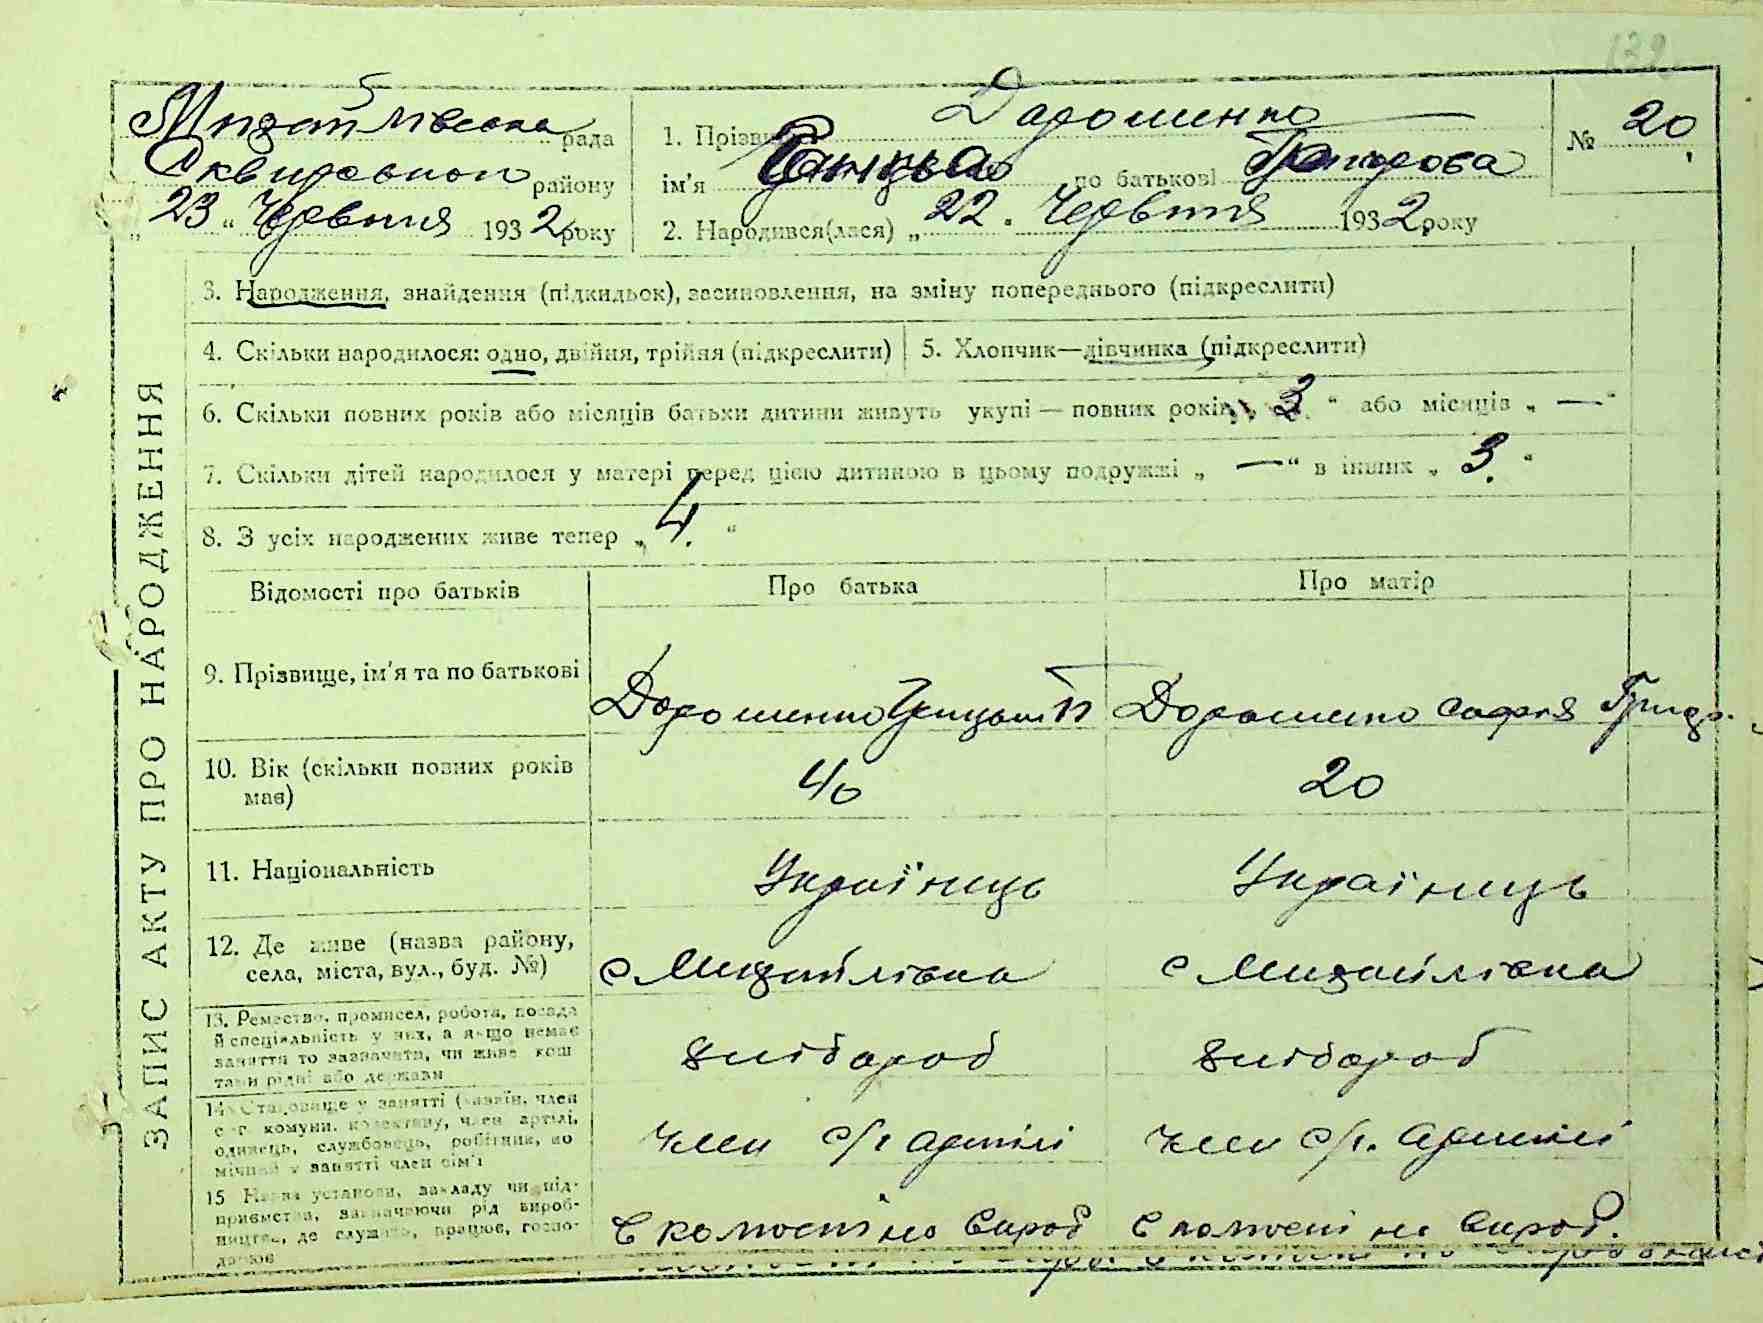 139
Михайлівська рада
Сквирского району
„23“ Червня 1932 року
1. Прізвище Дорошенко
ім'я по батькові Григорова
2. Народився(лася) „22“ Червня 1932 року
№ 20
ЗАПИС АКТУ ПРО НАРОДЖЕННЯ
3. Народження, знайдення (підкидьок), засиновлення, на зміну попереднього (підкреслити)
4. Скільки народилося: одно, двійня, трійня (підкреслити)
5. Хлопчик—дівчинка (підкреслити)
6. Скільки повних років або місяців батьки дитини живуть укупі — повних років „3“ або місяців „—“
7. Скільки дітей народилося у матері перед цією дитиною в цьому подружжі „—“ в інших „3.“
8. З усіх народжених живе тепер „4.“
Відомості про батьків Про батька Про матір
9. Прізвище, ім'я та по батькові
Дорошенко Грицько П Дорошенко Софія Григор.
10. Вік (скільки повних років
має)
40 20
11. Національність
Українець Українець
12. Де живе (назва району,
села, міста, вул., буд. №)
с Михайлівка с Михайлівка
13. Ремество, промисел, робота, посада
й спеціяльність у них, а якщо немає
заняття то зазначити, чи живе кош
тами рідні або держави
хлібороб хлібороб
14. Становище у занятті (хазяїн, член
с-г. комуни, колективу, член артілі,
одинець, службовець, робітник, по
мічний у занятті член сім'ї
член с/г артілі член с/г. артілі
15 Назва установи, закладу чи під-
приємства, зазначаючи рід вироб-
ництва, де служить, працює, госпо-
дарює